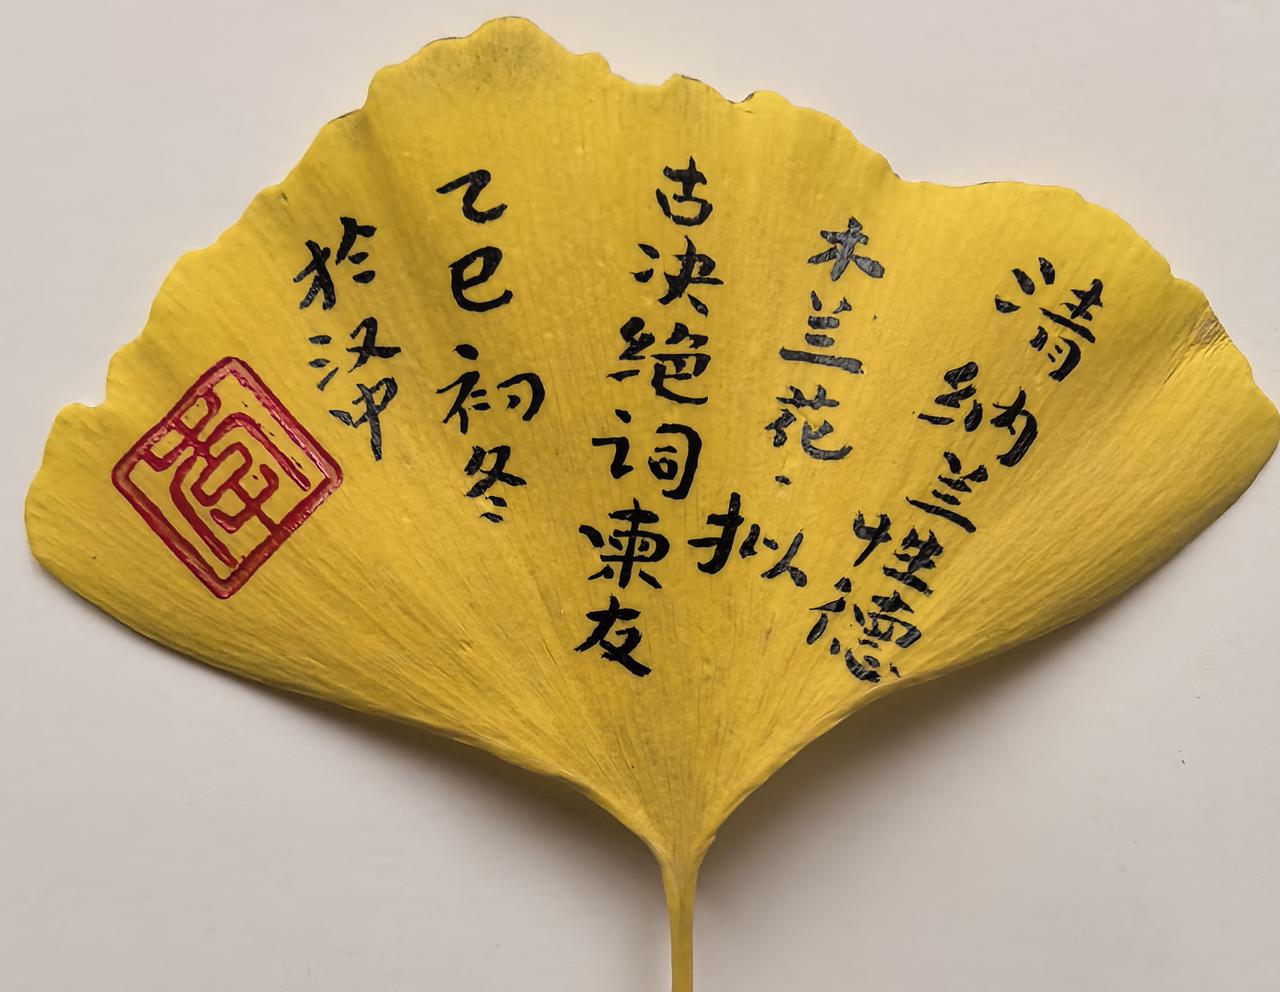 清納兰性德
木兰花·拟
古决絶词柬友
乙巳初冬
於汉中